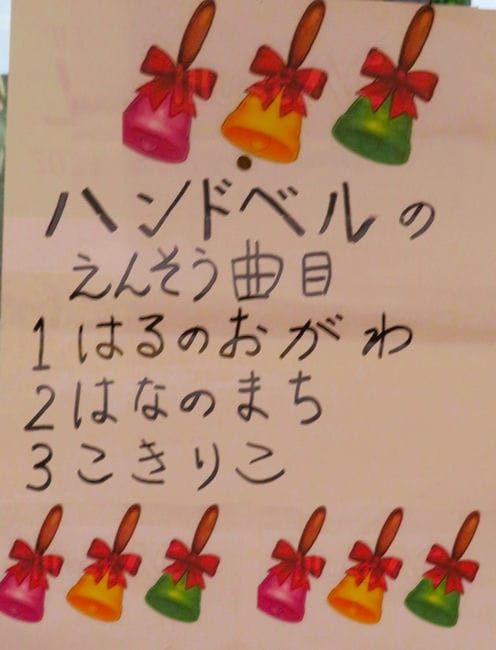 ハンドベルの
えんそう曲目
1 はるのおがわ
2 はなのまち
3 こきりこ